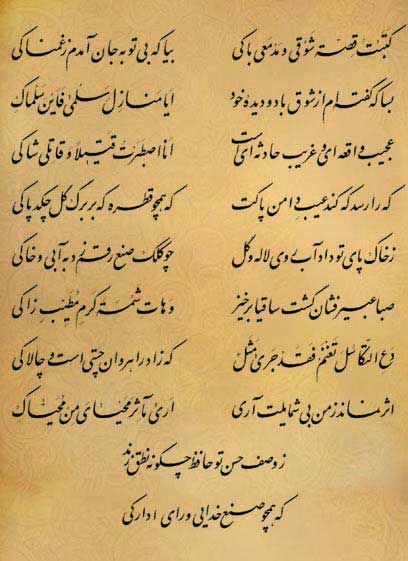 کتبت قصة شوقی و مدمعی باکی بیا که بی تو به جان آمدم ز غمناکی
بسا که گفته ام از شوق با دو دیدهٔ خود ایا منازل سلمی فاین سلماک
عجیب واقعه ای و غریب حادثه ای است انا اصطبرت قتیلا و قاتلی شاکی
که را رسد که کند عیب دامن پاکت که همچو قطره که بر برگ گل چکد پاکی
ز خاک پای تو داد آب روی لاله و گل چو کلک صنع رقم زد به آبی و خاکی
صبا عبیر فشان گشت ساقیا برخیز و هات شمسة کرم مطیب زاکی
دع التکاسل تغنم فقد جری مثل که زاد راهروان چستی است و چالاکی
اثر نماند ز من بی شمایلت آری اری مآثر محیای من محیاک
ز وصف حسن تو حافظ چگونه نطق زند
که همچو صنع خدایی ورای ادراکی